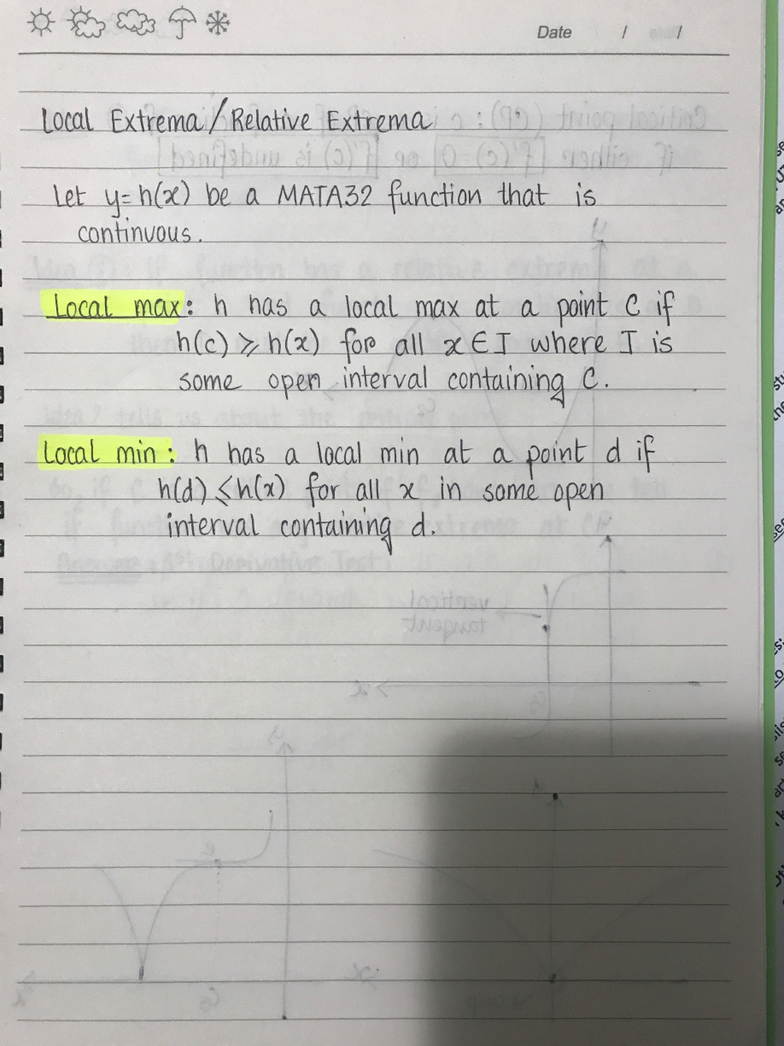 Date / /
Local Extrema/Relative Extrema
Let y=h(x) be a MATA32 function that is
continuous.
Local max: h has a local max at a point C if
h(c) ⩾ h(x) for all x∈I where I is
some open interval containing C.
Local min: h has a local min at a point d if
h(d) ⩽ h(x) for all x in some open
interval containing d.